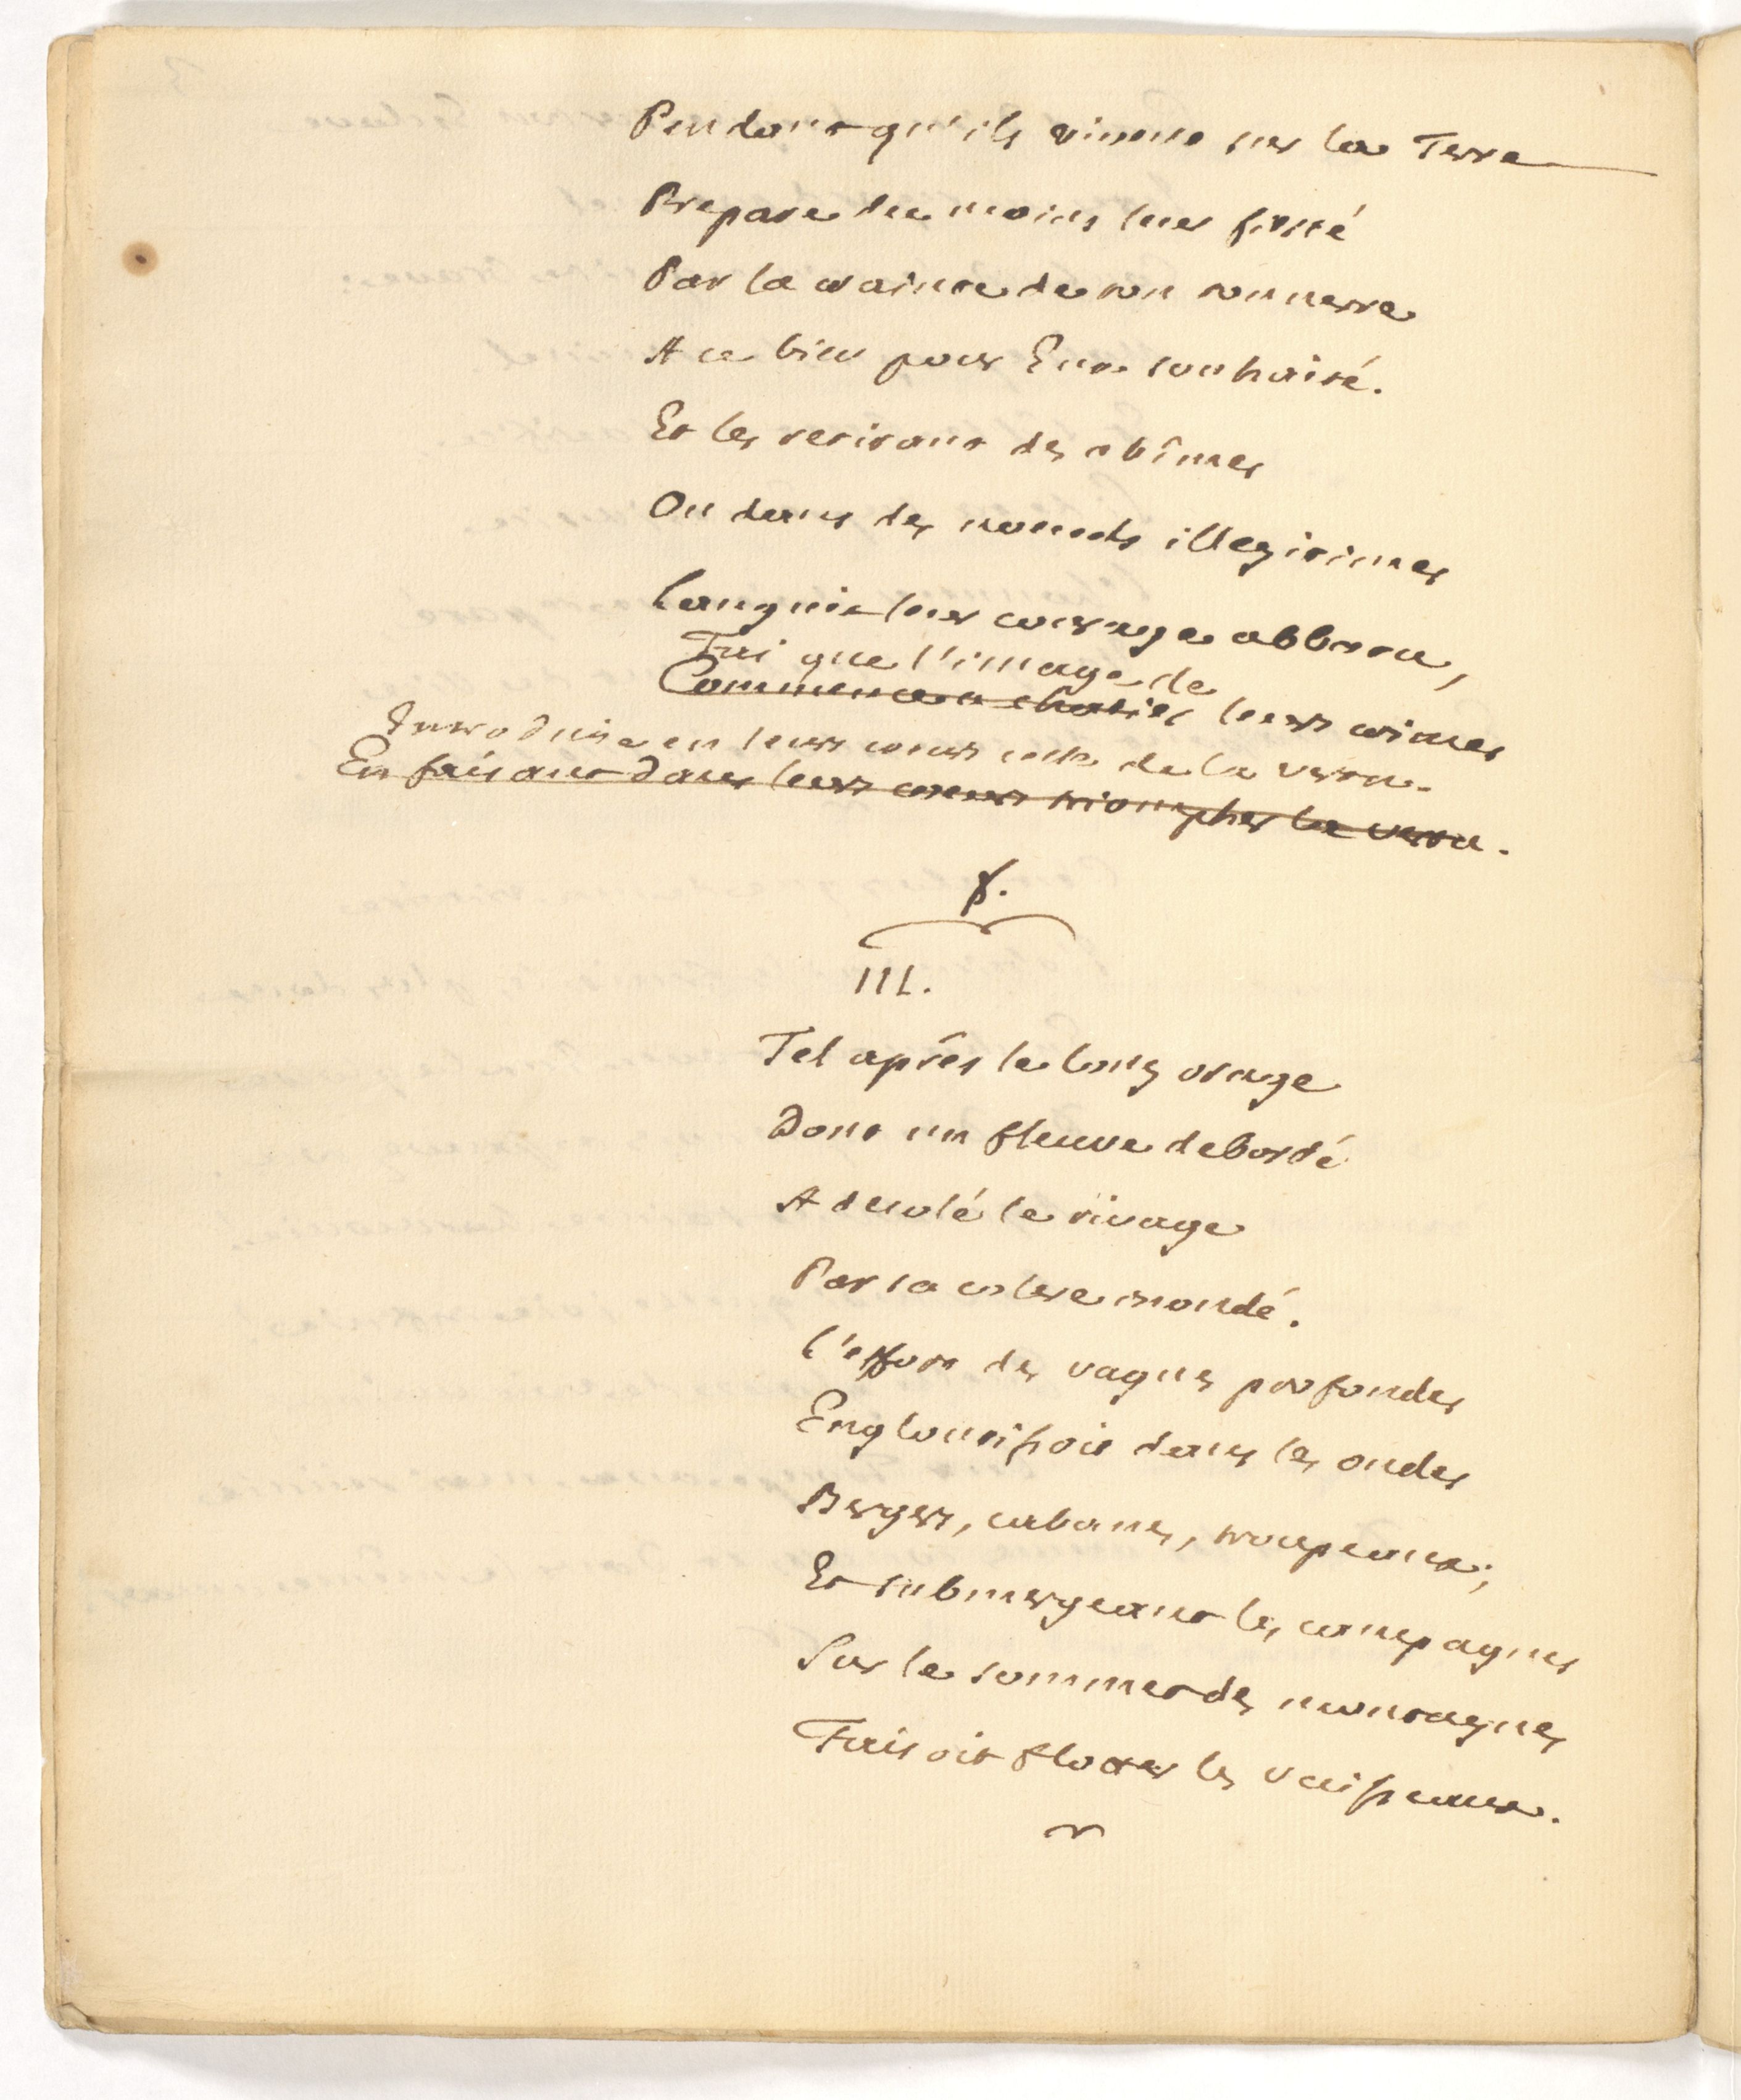 Pendant qu'ils vivent sur la Terre
Prepare du moins leur fierté
Par la crainte de son tonnerre
A ce bien pour Eux souhaité.
Et les retirant des abîmes
Ou dans des nœuds illegitimes
Languit leur courage abbatu,
Fai que l'image de
Commence a chatier leurs crimes
Introduise en leurs cœurs celle de la vertu.
En faisant dans leurs cœurs triompher la vertu.
III.
Tel après le long orage
Dont un fleuve debordé
A desolé le rivage
Par sa colere inondé.
L'effort des vagues profondes
Engloutissoit dans les ondes
Bergers, cabanes, troupeaux;
Et submergeant les campagnes
Sur le sommet des montagnes
Faisoit flotter les vaisseaux.